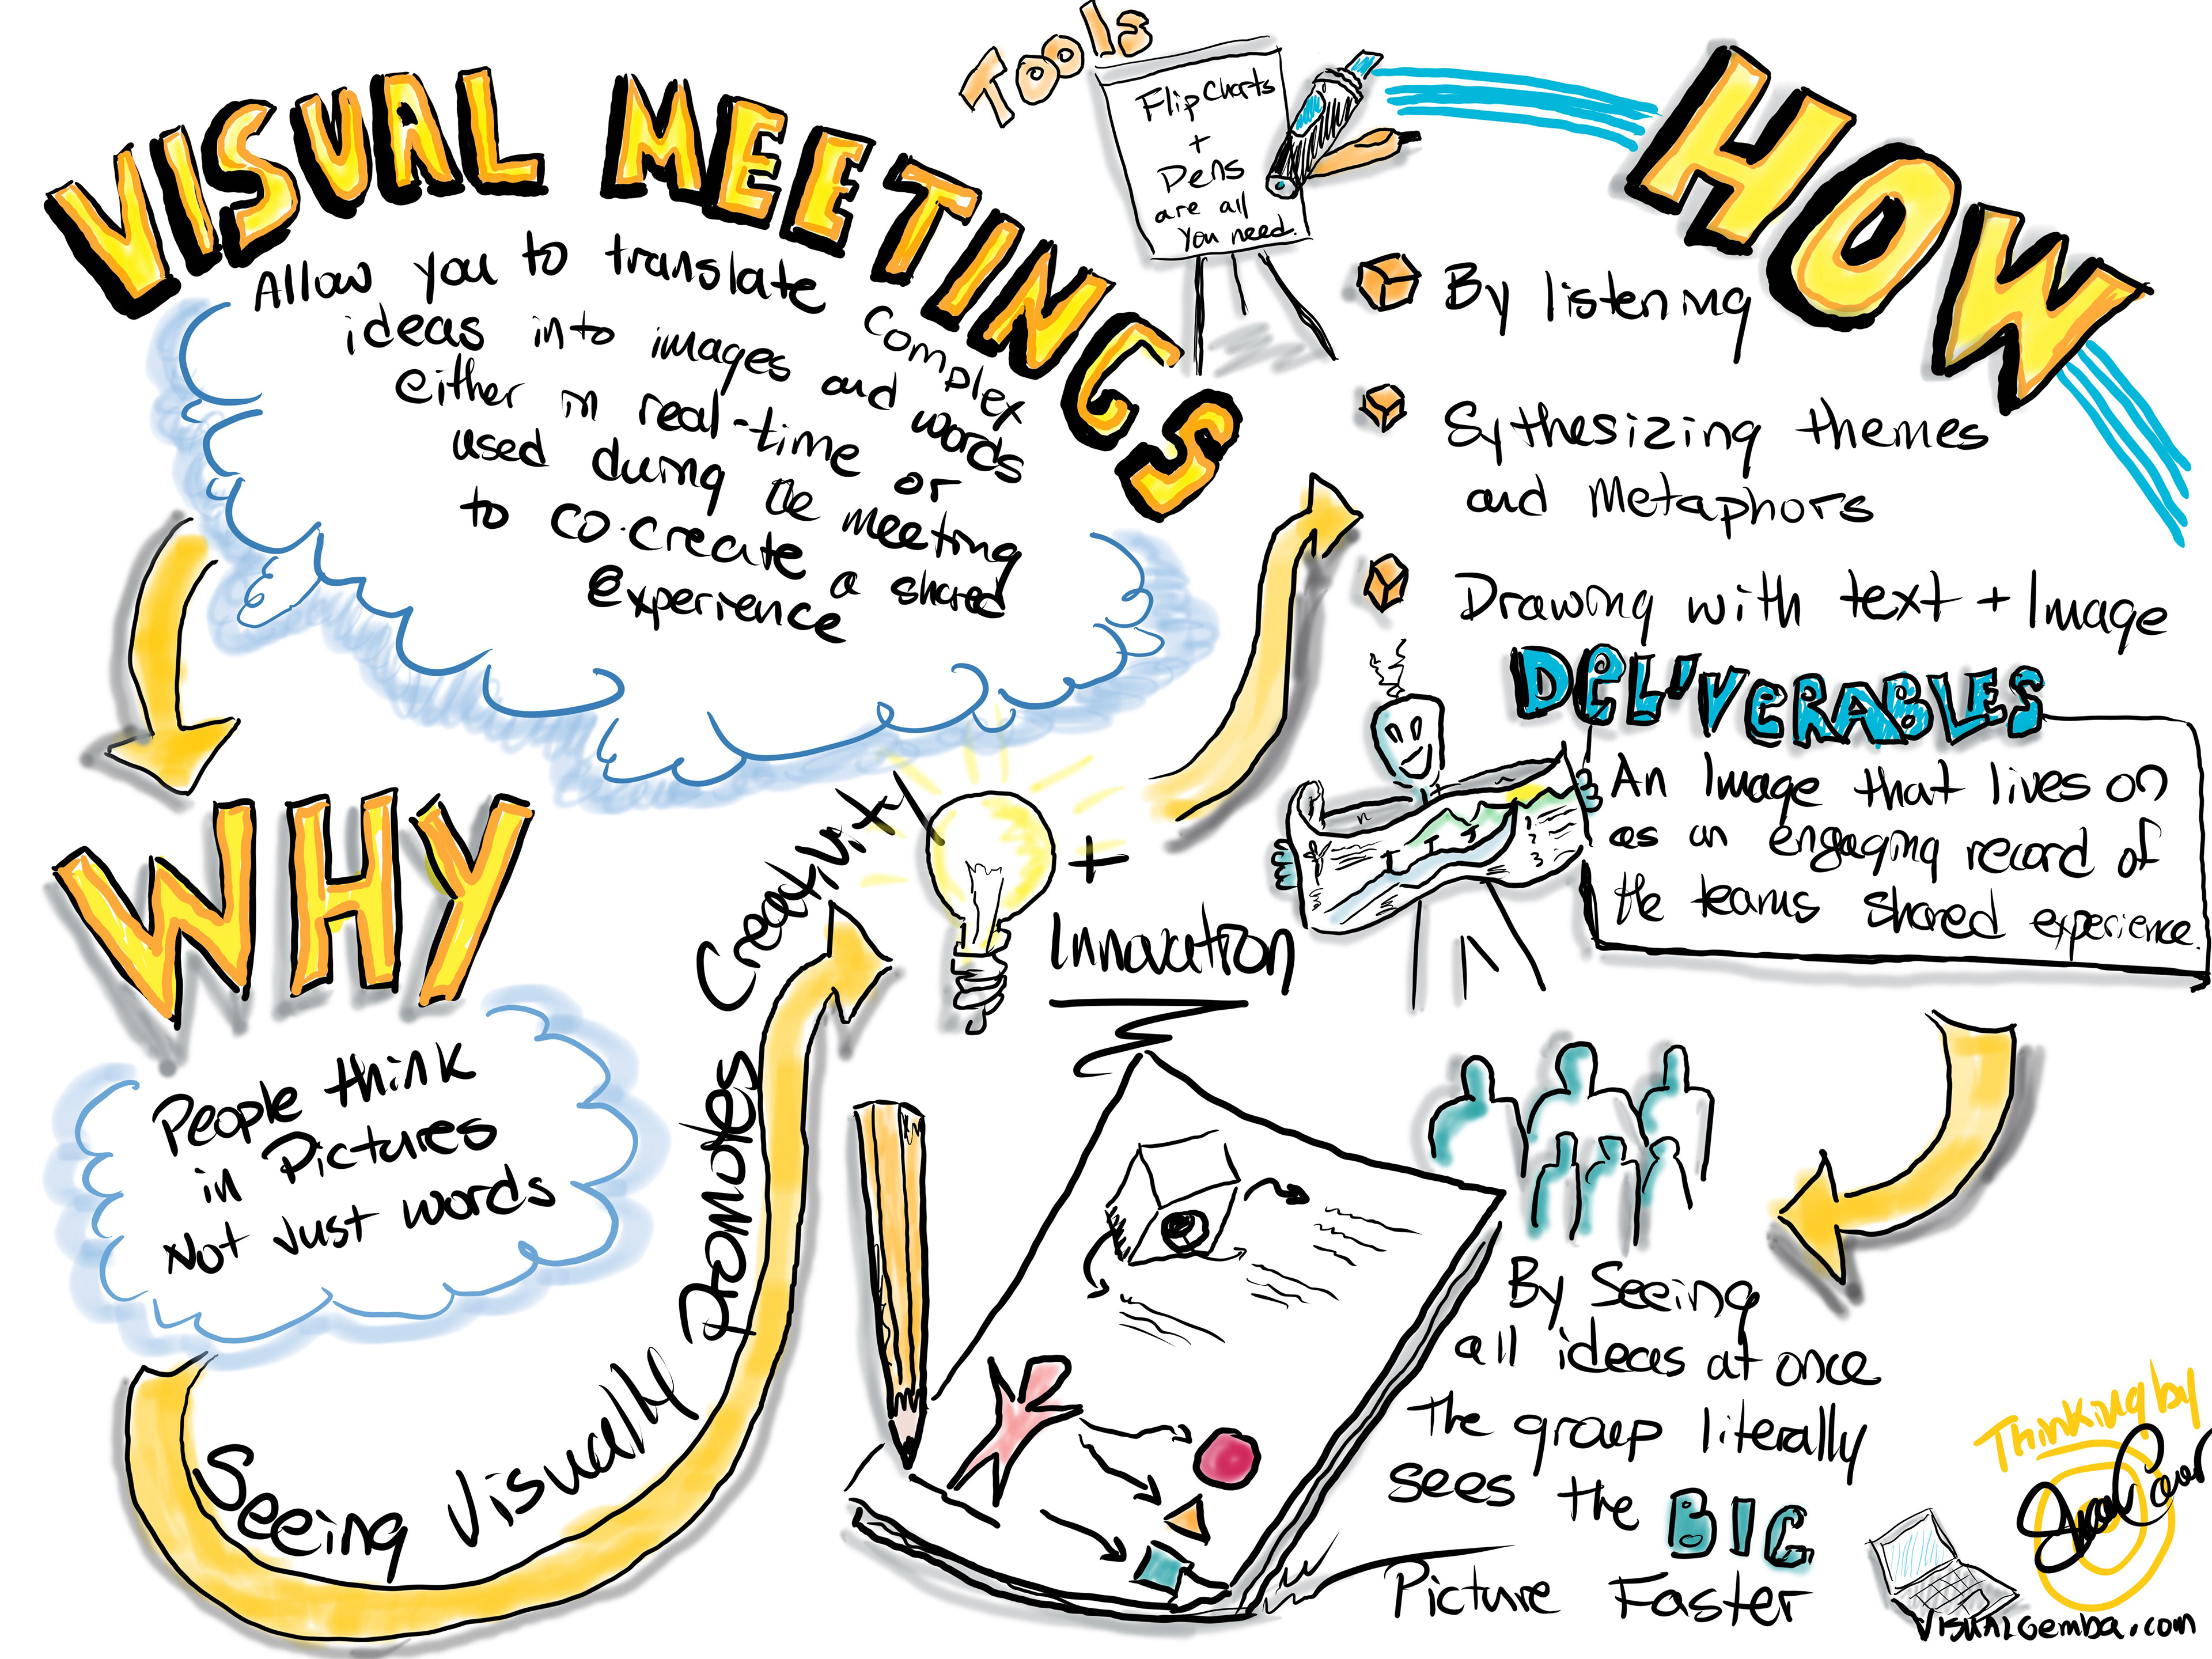 VISUAL MEETINGS
Allow you to translate complex
ideas into images and words
either in real-time or
used during the meeting
to co-create a shared
experience
Tools
Flipcharts
+
Pens
are all
you need.
HOW
By listening
Sythesizing themes
and Metaphors
Drawing with text + Image
DELIVERABLES
An Image that lives on
as an engaging record of
the teams shared experience.
WHY
People think
in Pictures
Not Just words
Seeing Visually Promotes Creativity
+
Innovation
By Seeing
all ideas at once
The group literally
sees the BIG
Picture Faster
Thinking by
VISUALGemba.com